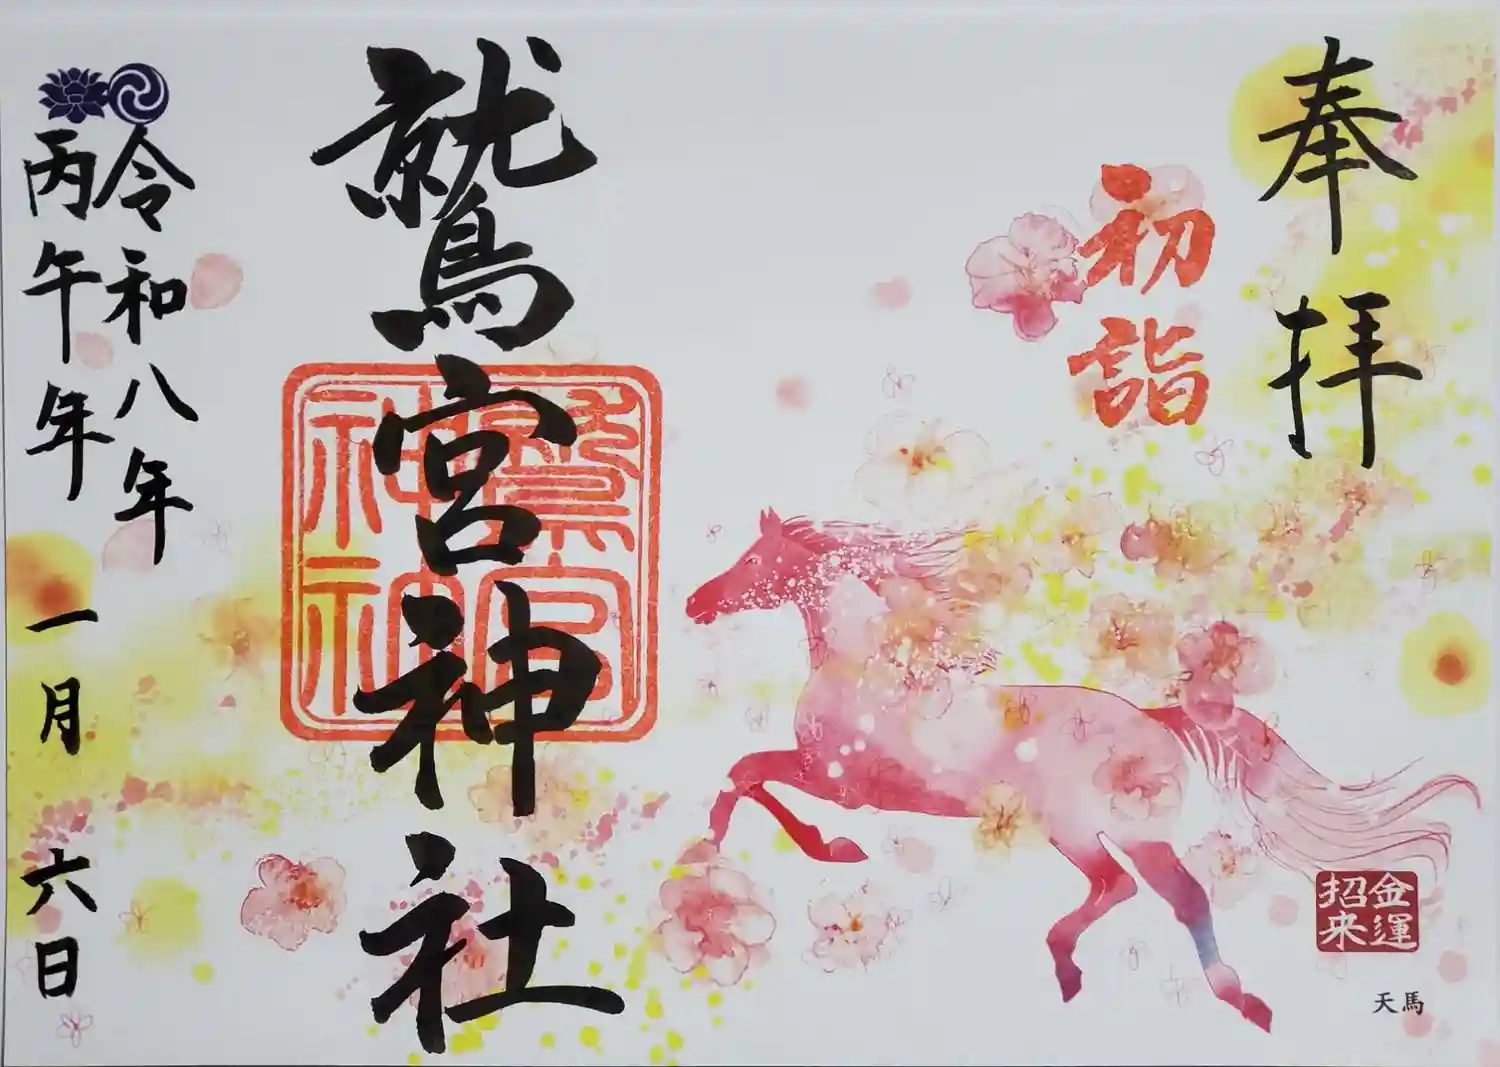 奉拝
初詣
金運
招来
天馬
鷲宮神社
鷲宮
神社
令和八年
丙午年
一月六日